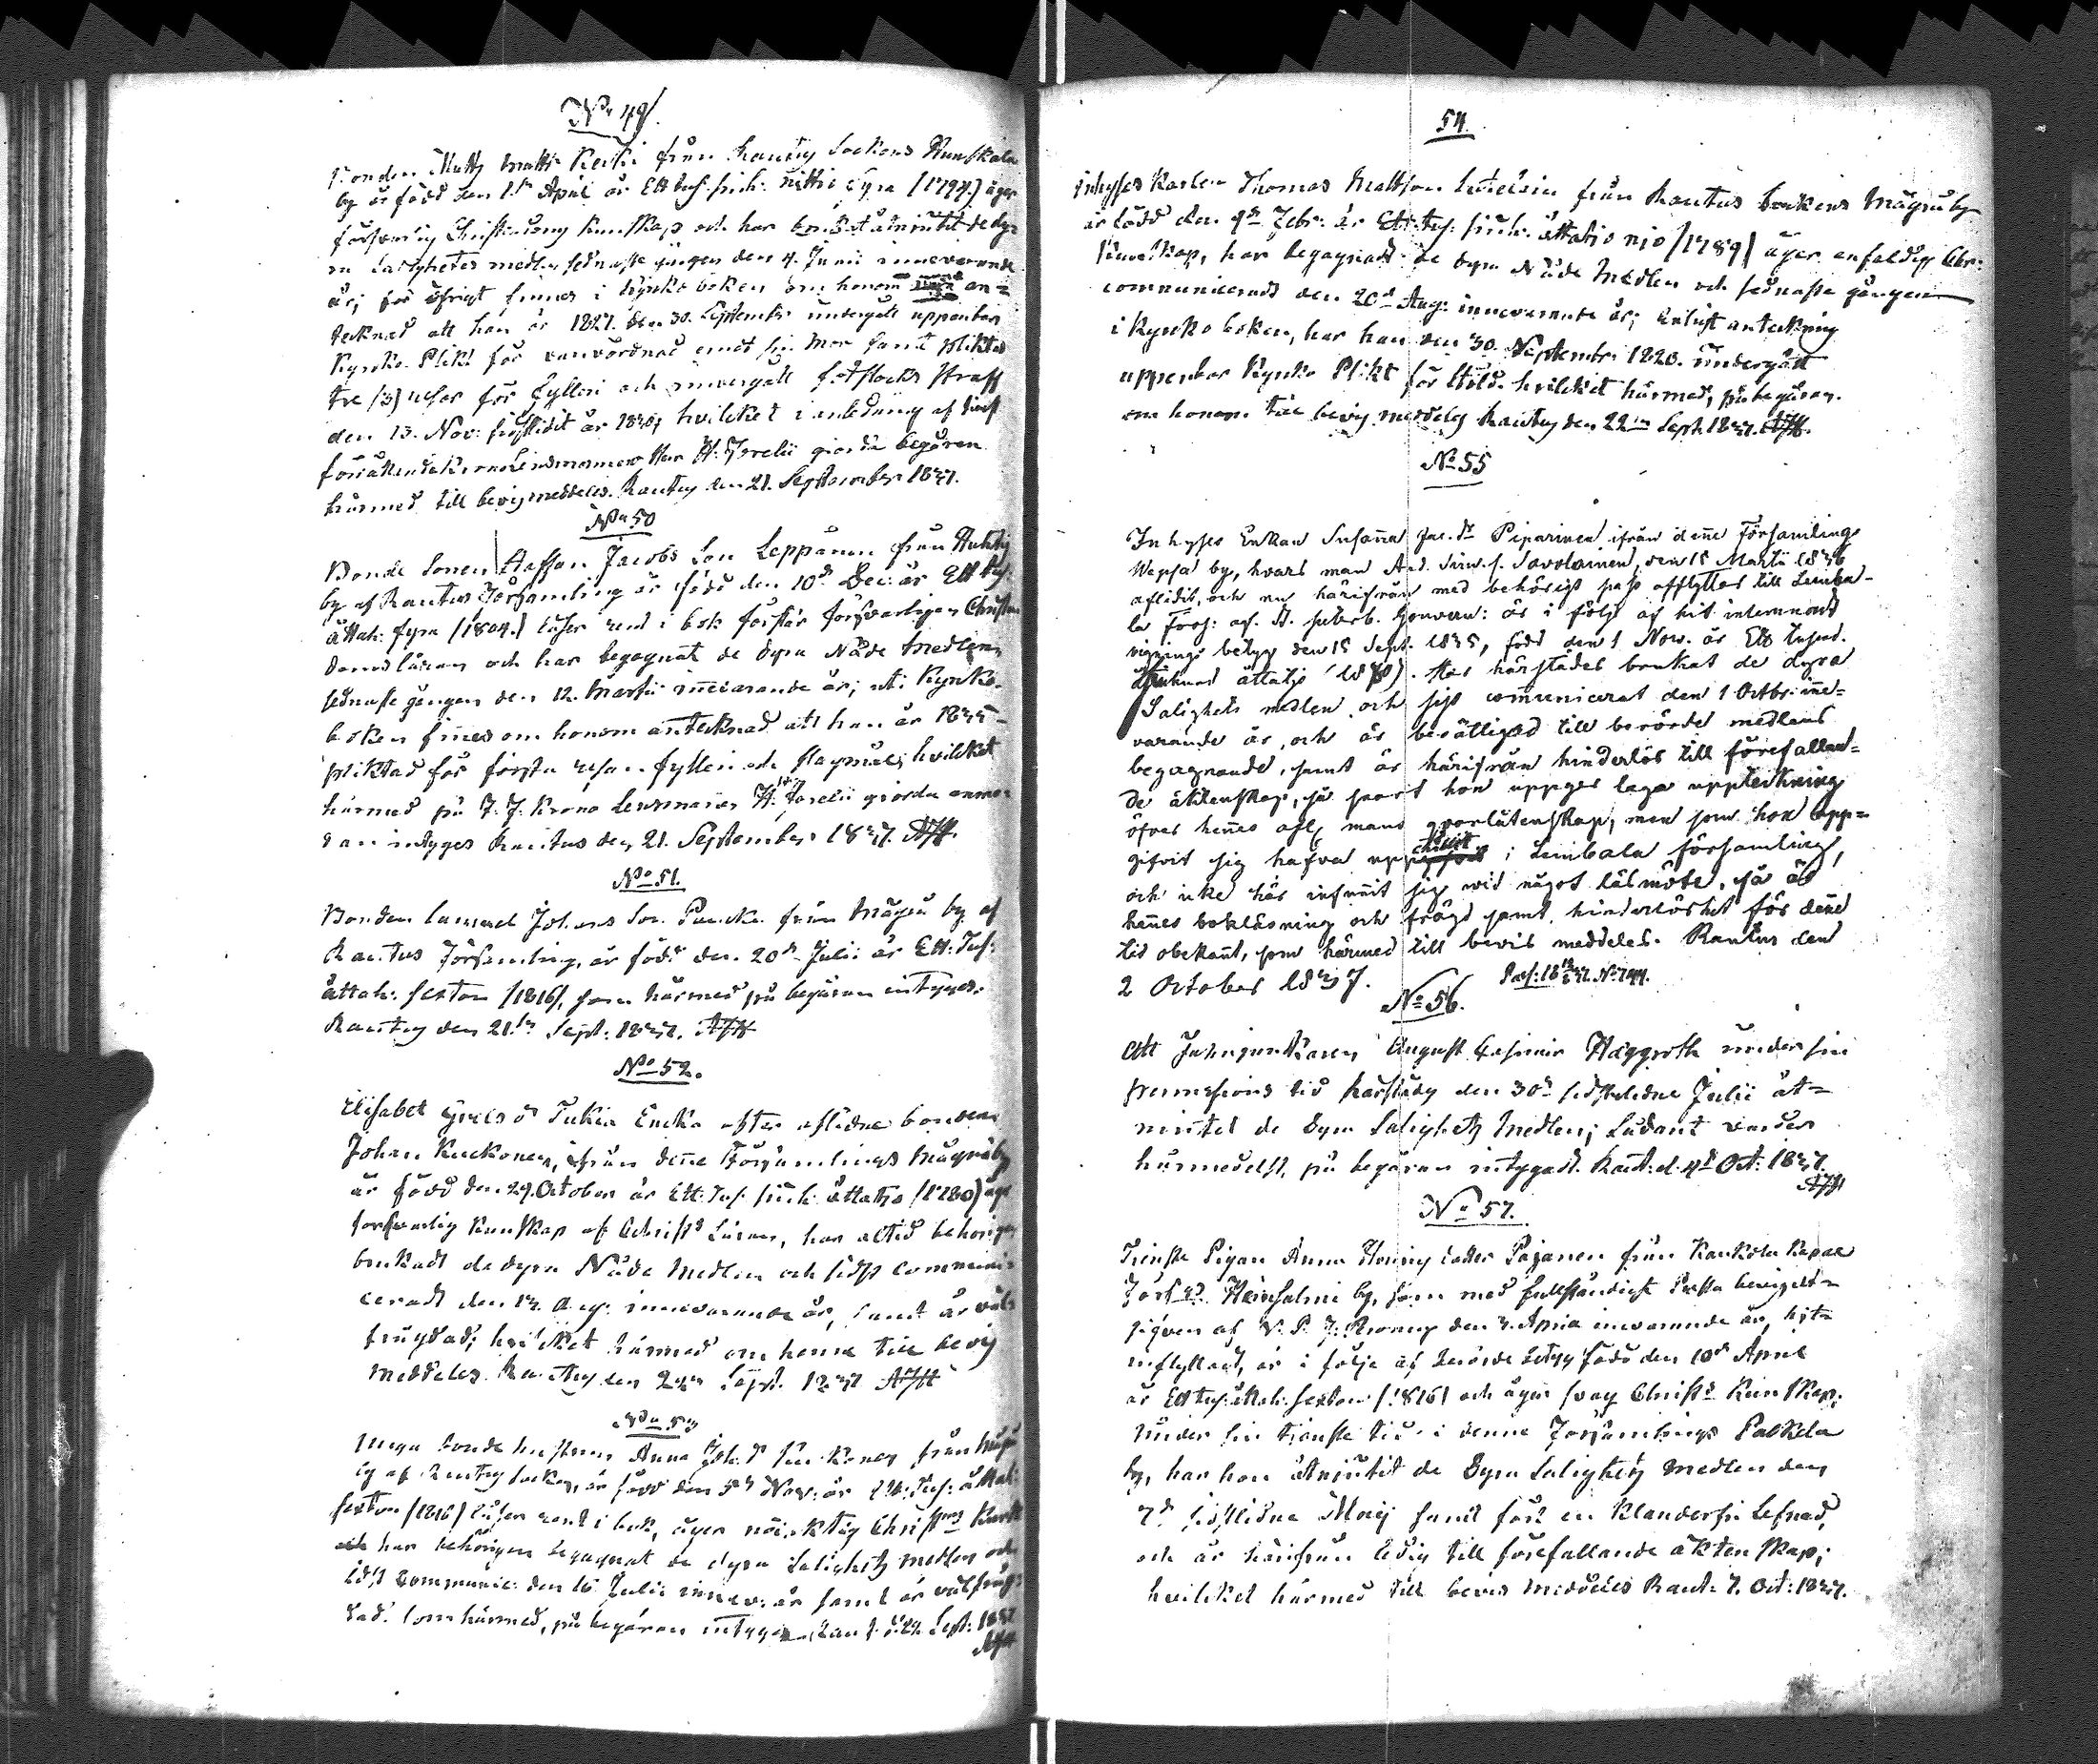 No 49.
Bonden Matts Matts Kerki från Rautus Sockens Hunskala
by är född den 1st April år Ett tus. sjuh: nittio fyra (1794) äger
försvarlig Christendoms Kunskap och har åtniutit de dyra
salighetes medlen sednaste gången den 4. Junii innevarande
år; för öfrigt finnes i kyrko boken om honom an=
tecknad att han år 1827. den 30. September undergått uppenbar
Kyrko Plikt för vanvördnad emot sin Mor samt pliktat
tre (3) resor för fylleri och undergått straff
den 13. Nov: år 1836; hvilcket i anledning af
Herr H: Forelii giorda begäran
härmed till bevis meddeles. Rautus den 21. September 1837.
No 50
Bonde Sonen Staffan Jacobs Son Leppänen från
by af Rautus Församling är född den 10de Dec: år Ett tus:
åttah: fyra (1804.) läser rent i bok förstår försvarligen Christen
doms läran och har begagnat de dyra Nåde Medlen,
sednaste gången den 12. Martii innevarande år; uti Kyrko-
boken finnes om honom antecknad att han år 1835
pliktad för första resan fylleri och slagsmål; hvilcket
härmed på Krono Lensmannen H: Forelii giorda anmo-
dan intyges Rautus den 21. September 1837. AJH.
No 51.
Bonden Samuel Johans Son från Mägrä by af
Rautus Församling, är född den 20de Julii år Ett: Tus:
åttah: sexton (1816), som härmed på begäran intyges.
Rautus den 21.ta Sept: 1837. AJH
No 52.
Elisabet Grels dr Tukia Encka efter aflidne bonden
Johan Kuckonen, ifrån denne Församlings Mägräby
är född den 29. October år Ett: Tus: siuh: åttatio (1780) äger
försvarlig Kunskap af Christi Läran, har altid behörigen
brukadt de dyra Nåde Medlen och sidst communi-
ceradt den 13. Aug: innevarande år, samt är väl
frägdad; hvilcket härmed om henne till bevis
meddeles. Rautus den Sept. 1837 AJH
No 53
Unga bonde hustrun Anna Joh: dr från Mägrä
by af Rautus Socken, är född den 5te Nov: år Ett: Tus: åttah:
sexton (1816) läser rent i bok, äger nöiaktig
har behörigen begagnat de dyra Salighets medlen och
sidst Communic: den 16 Julii innev: år samt är välfräg-
dad. Som härmed, på begäran intygas, Raut. d. 22 Sept: 1837
AJH
54.
Inhyses Karlen Thomas Mattsson från Rautus Sockens Mägräby
är född den 9de Febr: år Ett: tus: siuh: åttatio nio (1789) äger enfaldig Chr:
Kunskap, har begagnadt de dyra Nåde Medlen och sednaste gången
communiceradt den 20de Aug: innevarande år; enligt anteckning
i Kyrko boken, har han den 30. Septembr: 1820. undergått
uppenbar Kyrko Plikt för Stöld. hvilcket härmed, på begäran.
om honom till bevis meddeles Rautus den 22 Sept. 1837. AJH.
No 55
Inhyses Enkan Susanna Jac. dr Piparinen ifrån denne Församlings
Wepsa by, hvars man And. Simons. Savolainen, den 15 Martii 1836
aflidit, och nu härifrån med behörigt pass afflyttas till Lemba-
la Förs: af St. Petersb. Gouvern: är i följe af hit inlemnadt
betyg den 15 Sept. 1835, född den 1 Nov. år Ett tusend.
åttatio. Har härstädes brukat de dyra
Salighets medlen och sist communicerat den 1 Octbr. inne=
varande år, och är berättigad till berörde medlens
begagnande, samt är härifrån hinderlös till förefallan=
de äktenskap, så snart hon uppger laga uppteckning
öfver hennes afl. mans qvarlåtenskap; men som hon upp=
gifvit sig hafva i Lembala församling,
och icke här infunnit sig vid något läsmöte, så är
hennes bokläsning och frägd samt hinderlöshet för denne
tid obekant, som härmed till bevis meddeles. Rautus den
2 October 1837.
No 56.
Att August Casimir Häggroth under sin
permissions tid härstädes den 30de sidstledne Julii åt=
niutet de dyra Salighets Medlen; sådant varder
härmedelst, på begäran intygadt. Raut: d. 4de Oct: 1837.
AJH
No 57.
Tienste Pigan Anna Henrics dotter Pajanen från Kaukola Kapel
Förs:gs Heinsalmi by, som med fullständigt Prest bevis
gifven af V. P. den 3. April innevarande år, hit=
inflyttadt, är i följe af berörde betyg född den 10de April
år Ett tus: åttah: sexton (1816) och äger svag Christ: Kunskap;
under sin tienste tid i denne Församlings Palkela
by, har hon åtniutit de dyra Salighets Medlen den
7de sistlidne Maij samt fört en klanderfri lefnad,
och är härifrån ledig till förefallande äktenskap;
hvilcket härmed till bevis meddeles Raut: 7. Oct: 1837.